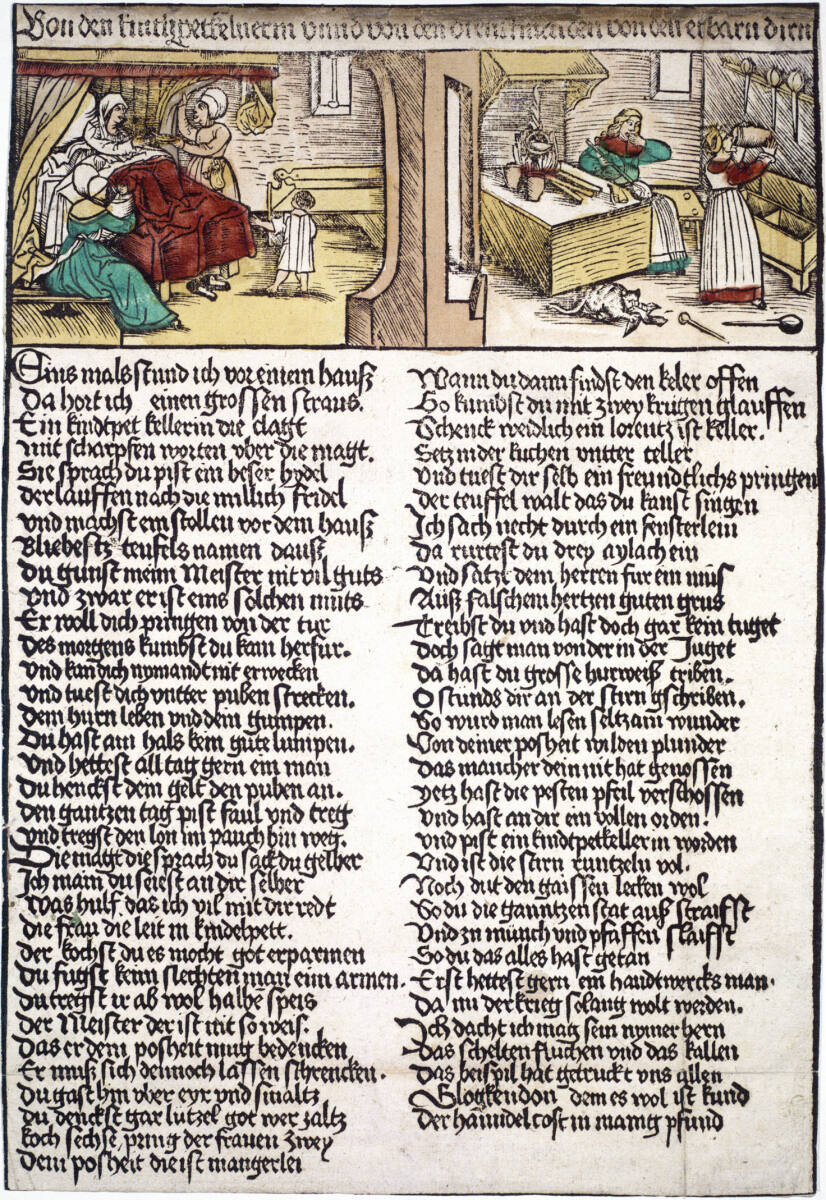 Von den kindtpetkelnerin vnnd von den dienstmaiden von den erbarn dirn
Eins mals stund ich vor einem hauß
Da hort ich einen grossen straus.
Ein kindtpet kellerin die clagt
mit scharpfen worten vber die magt.
Sie sprach du pist ein beser hydel
der lauffen nach die millich fridel
vnd machst ein stollen vor dem hauß
Bliebestz teufels namen dauß
Du gunst meim Meister nit vil guts
Vnd zwar er ist eins solchen muts
Er woll dich pringen von der tur
des morgens kumbst du kam herfur.
vnd kan dich nymandt nit erwecken
vnd tuest dich vntter puben strecken.
Dem hurn leben vnd dein gumpen.
Du hast am hals kein gute lumpen.
Vnd hettest all tag gern ein man
Du henckst dem gelt den puben an.
den gantzen tag pist faul vnd treg
vnd tregst den lon im pauch hin weg.
Die magt die sprach du sack du gelber
Ich main du seiest an dir selber
Was hulf das ich vil mit dir redt
die frau die leit in kindelpett.
der kochst du es mocht got erparmen
Du fugst keim slechten man eim armen.
du tregst ir ab wol halbe speis
der Meister der ist nit so weis.
Das er dem posheit mug bedencken
Er muß sich dennoch lassen schrencken.
du gast hin vber eyr vnd smaltz
du denckst gar lutzel got wer zaltz
koch sechse pring der frauen zwey
Dem posheit die ist mangerlei
Wann du dann findst den keler offen
So kumbst du mit zwey krugen glauffen
Schenck weidlich ein lorentz ist keller.
Setz in der kuchen vntter teller
vnd tuest dir selb ein freundtlichs pringen
der teuffel walt das du kanst singen
Ich sach necht durch ein fensterlein
da rurtest du drey aylach ein
Vnd satzt dem herren fur ein mus
Auß falschem hertzen guten grus
Treibst du vnd hast doch gar kein tuget
doch sagt man von der in der Juget
da hast du grosse hurweiß triben.
O stunds dir an der stirn gschriben.
So wurd man lesen seltzam wunder
Von deiner posheit wilden plunder
das mancher dein nit hat genossen
yetz hast die pesten pfeil verschossen
vnd hast an dir ein vollen orden.
vnd pist ein kindtpetkellerin worden
Vnd ist die stirn runtzeln vol.
Noch dut den gaissen lecken wol
So du die ganntzen stat auß straifst
Vnd zu munch vnd pfaffen slaifst
So du das alles hast getan
Erst hettest gern ein handtwercks man.
Da nu der krieg so lang wolt werden.
Ich dacht ich mag sein nymer hern
das schelten fluchen vnd das kallen
das beispil hat getruckt vns allen
Glogkendon dem es wol ist kund
der hanndel cost in manig pfund